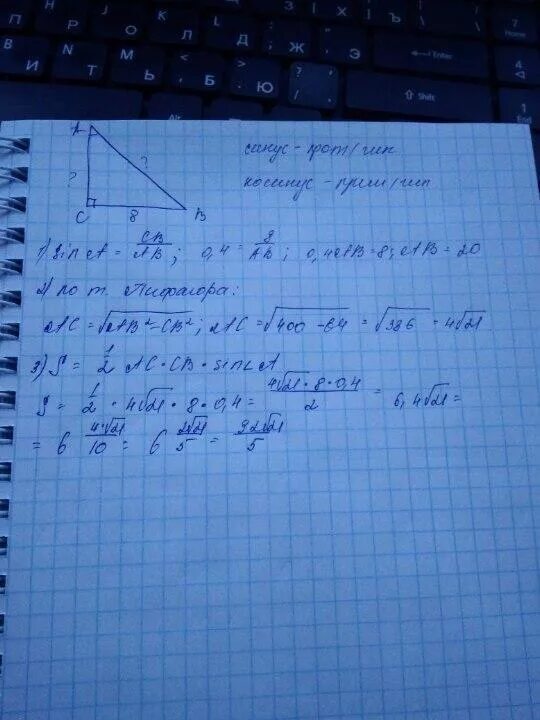 Х Ъ
Р О Л Д Ж Э Enter
И Т Ь Б Ю Shift
7 Home
4
1 End
Alt
A
?
?
C 8 B
синус - прот/гип
косинус - прил/гип
1) sin A = CB/AB ; 0,4 = 8/AB ; 0,4AB = 8; AB = 20
2) по т. Пифагора:
AC = √AB² - CB² ; AC = √400 - 64 = √336 = 4√21
3) S = 1/2 AC · CB · sin∠A
S = 1/2 · 4√21 · 8 · 0,4 = 4√21 · 8 · 0,4/2 = 6,4√21 =
= 6 4√21/10 = 6 2√21/5 = 32√21/5